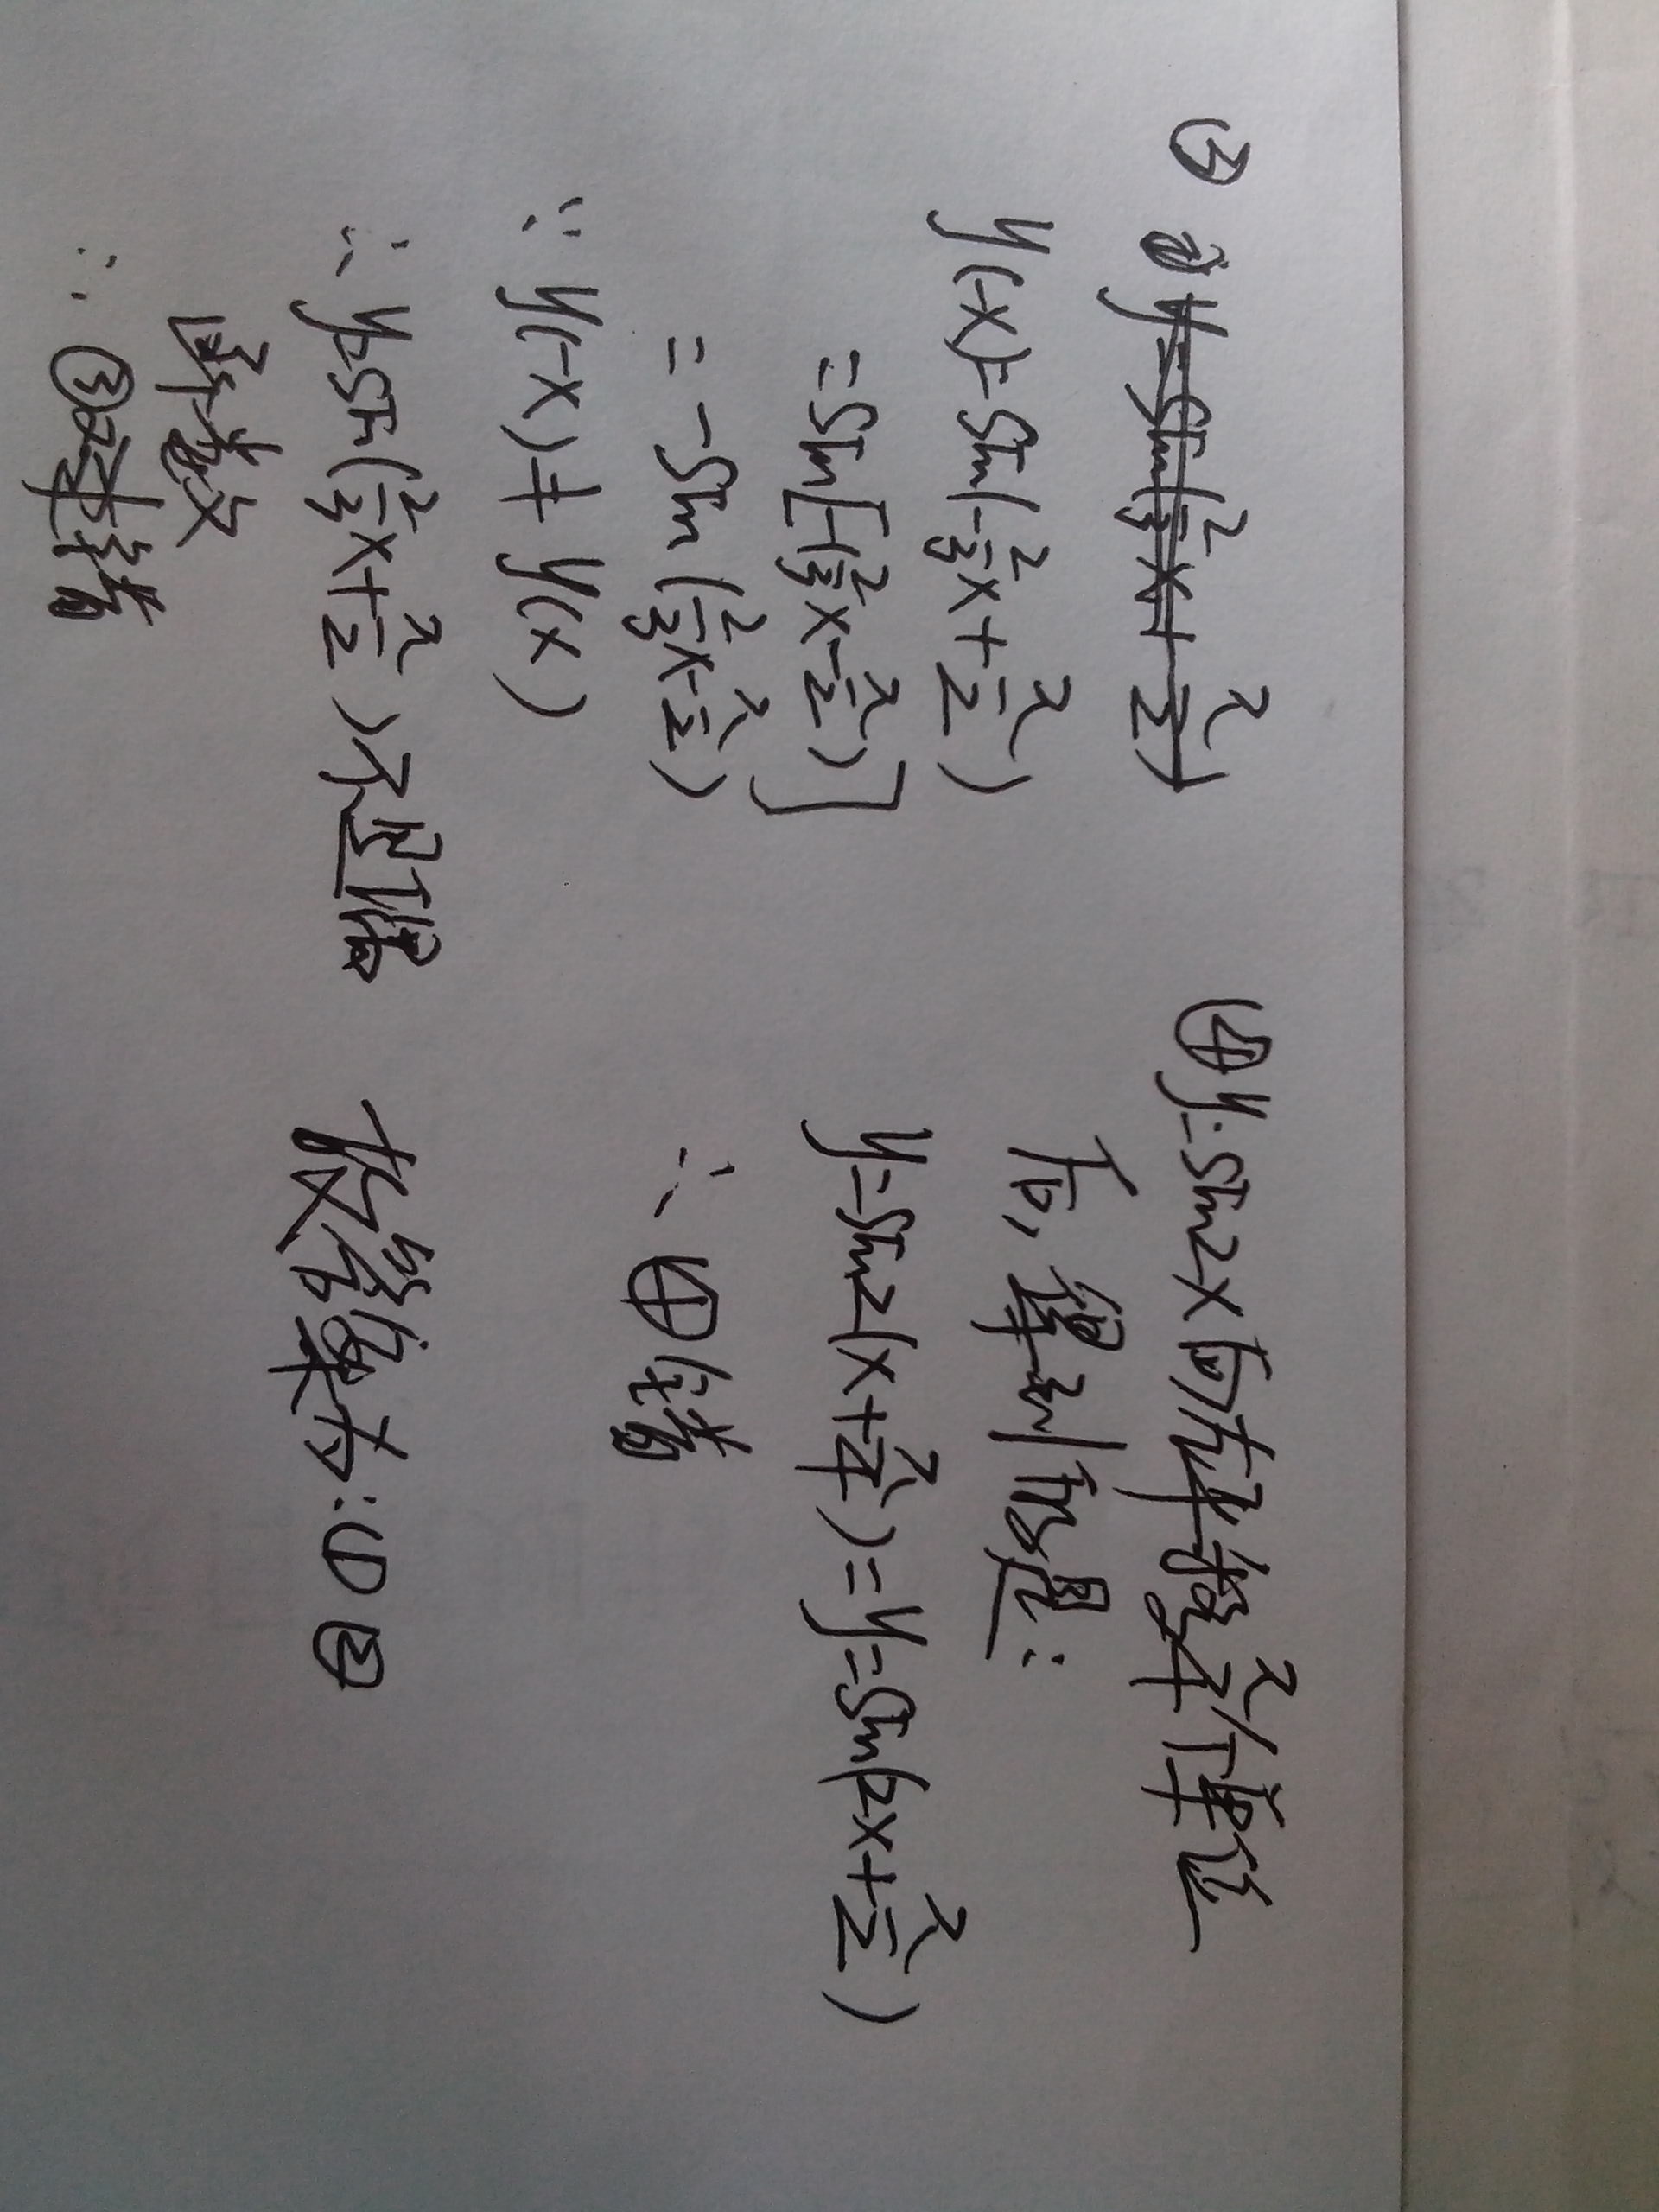 ③ y=sin(2/3x+π/2)
y(-x)=sin(-2/3x+π/2)
=sin[-(2/3x-π/2)]
=-sin(2/3x-π/2)
∵ y(-x)≠y(x)
∴ y=sin(2/3x+π/2)不是偶
函数
∴ ③对错
④y=sin2x向左平移π/4个单位
后,得到的是:
y=sin2(x+π/4)=y=sin(2x+π/2)
∴ ④错
故答案为:①②